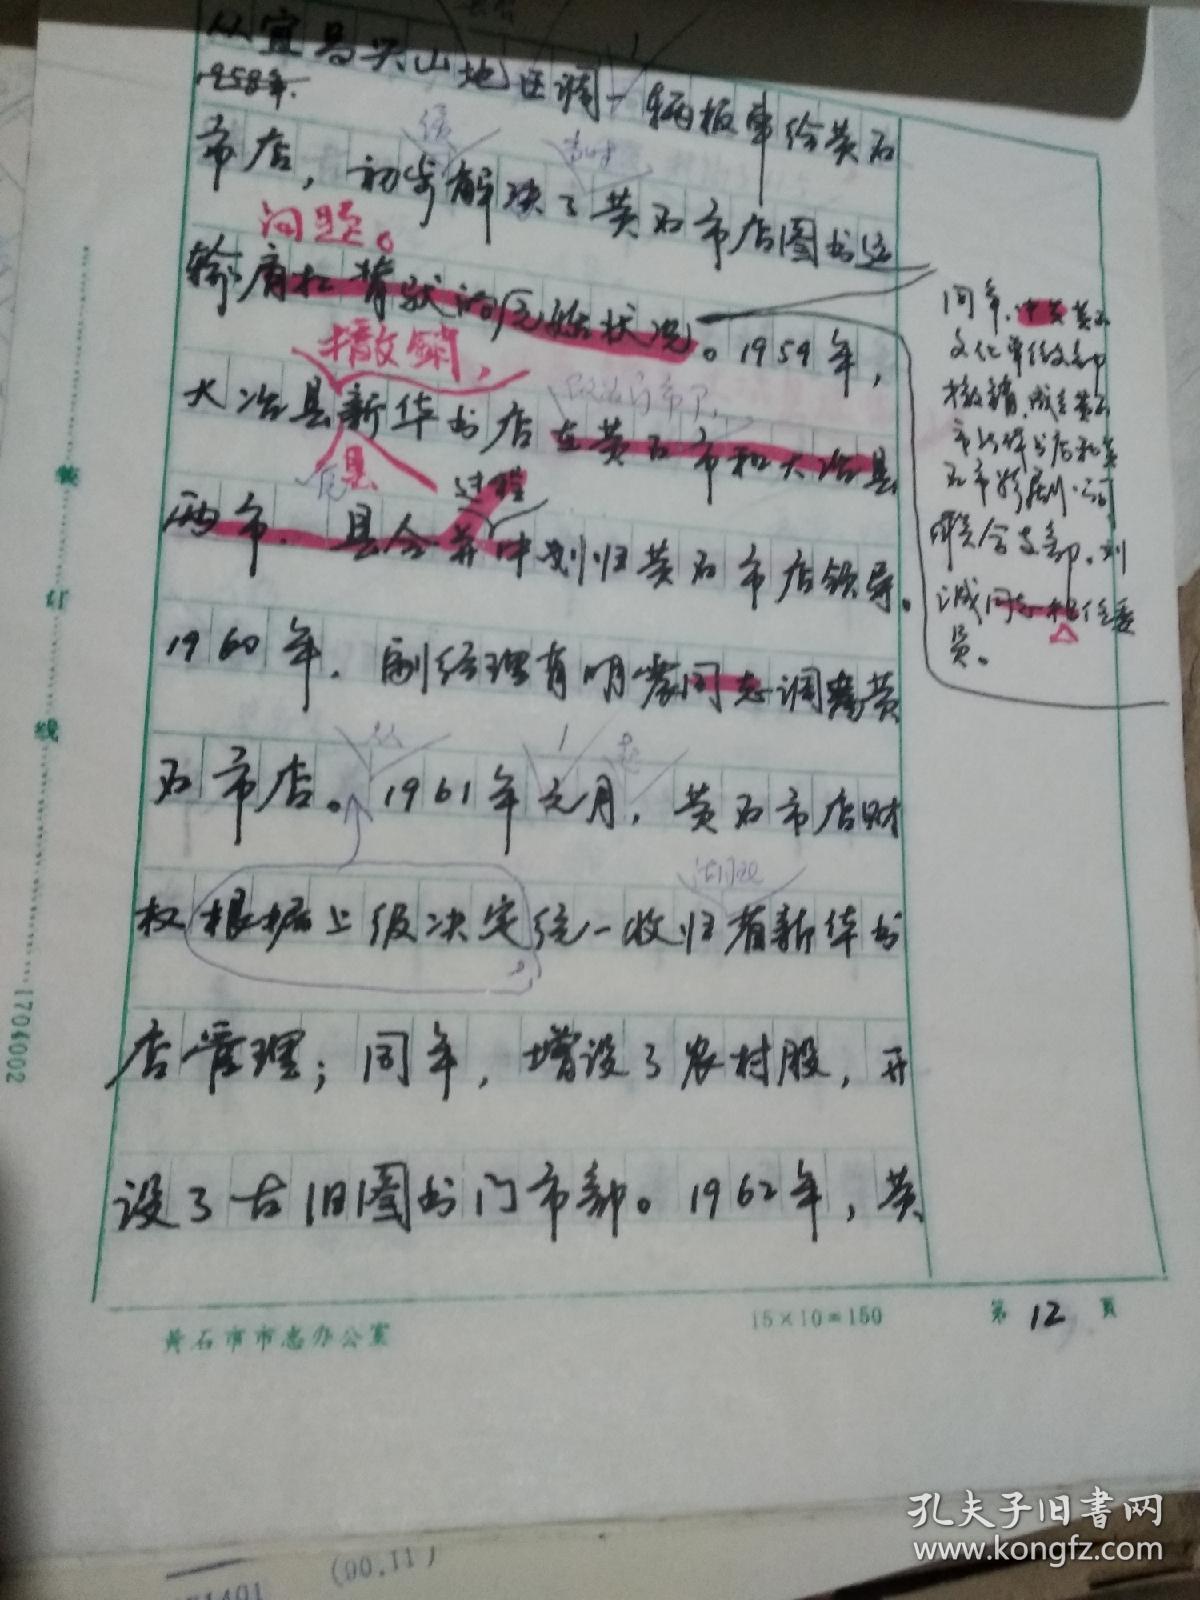 从宜昌
山地区调一辆板车给黄石
1958年.
市店，初步解决了黄石市店图书运
问题。
输肩扛背驮的
状况。1959年，
撤销，
大冶县新华书店在黄石市和大冶县
县
过程
两市、县合并中划归黄石市店领导。
1960年，副经理肖明
同志调离黄
石市店。1961年元月，黄石市店财
从
起
权根据上级决定统一收归省新华书
店管理；同年，增设了农村股，开
设了古旧图书门市部。1962年，黄
同年，中共黄石
文化单位支部
撤销，成立黄石
市新华书店和黄
石市影剧公司
联合支部。刘
诚同志担任委
员。
装订线
1704002
黄石市市志办公室
15×10=150
第12页
(00.11)
孔夫子旧书网
www.kongfz.com